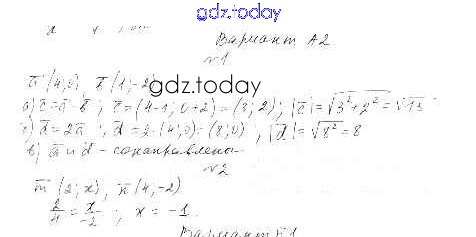 gdz.today
Вариант А2
№1
a̅ (4;0), b̅ (1;-2)
gdz.today
а) c̅ = a̅ - b̅ ; c̅ = (4-1; 0+2) = (3; 2); |c̅| = √3²+2² = √13
d̅ = 2a̅ ; d̅ = 2·(4;0) = (8;0) , |d̅| = √8² = 8
в) a̅ и d̅ - сонаправлены
№2
m̅ (2; x), n̅ (4,-2)
2/4 = x/-2 ; x = -1.
Вариант Б1